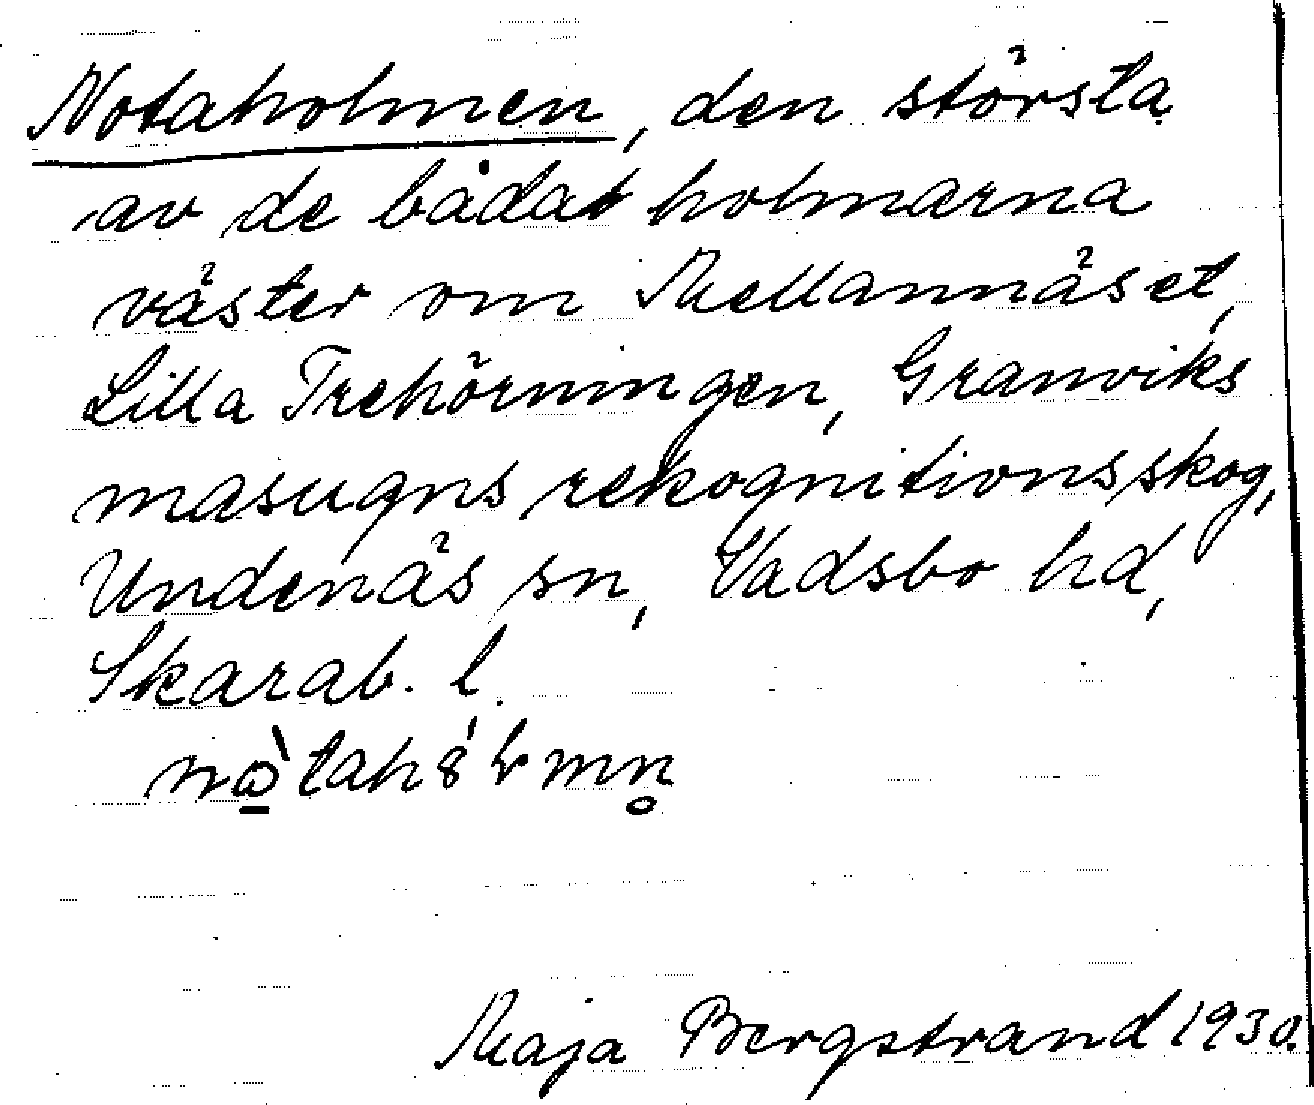 Notaholmen, den största
av de båda holmarna
väster om Mellannäset,
Lilla Trehörningen, Granviks
masugns rekognitionsskog,
Undenäs sn, Vadsbo hd,
Skarab. l.
Maja Bergstrand 1930.